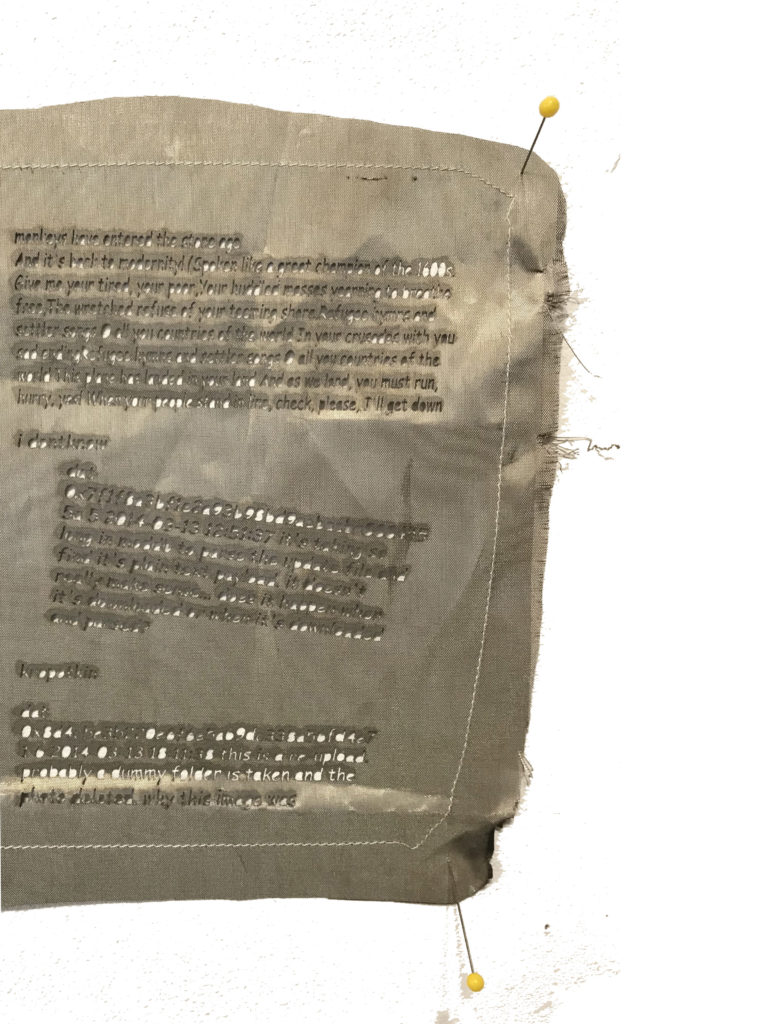 monkeys have entered the stone age
And it's back to modernity! (Spoken like a great champion of the 1600s.
Give me your tired, your poor,Your huddled masses yearning to breathe
free,The wretched refuse of your teeming shore.Refugee hymns and
settler songs O all you countries of the world In your crusades with you
sad ending Refugee hymns and settler songs O all you countries of the
world This plane has landed in your land And as we land, you must run,
hurry, yes! When your people stand in line, check, please, I'll get down
i dont know
dat:
2014-03-13 it's taking so
long in modlit to parse the update file and
find it's plain text payload. it doesn't
really make sense... does it happen when
it's downloaded or when it's downloaded
and parsed?
kropotkin
dat:
2014-03-13 18:11:38 this is a re upload.
probably a dummy folder is taken and the
photo deleted. why this image was